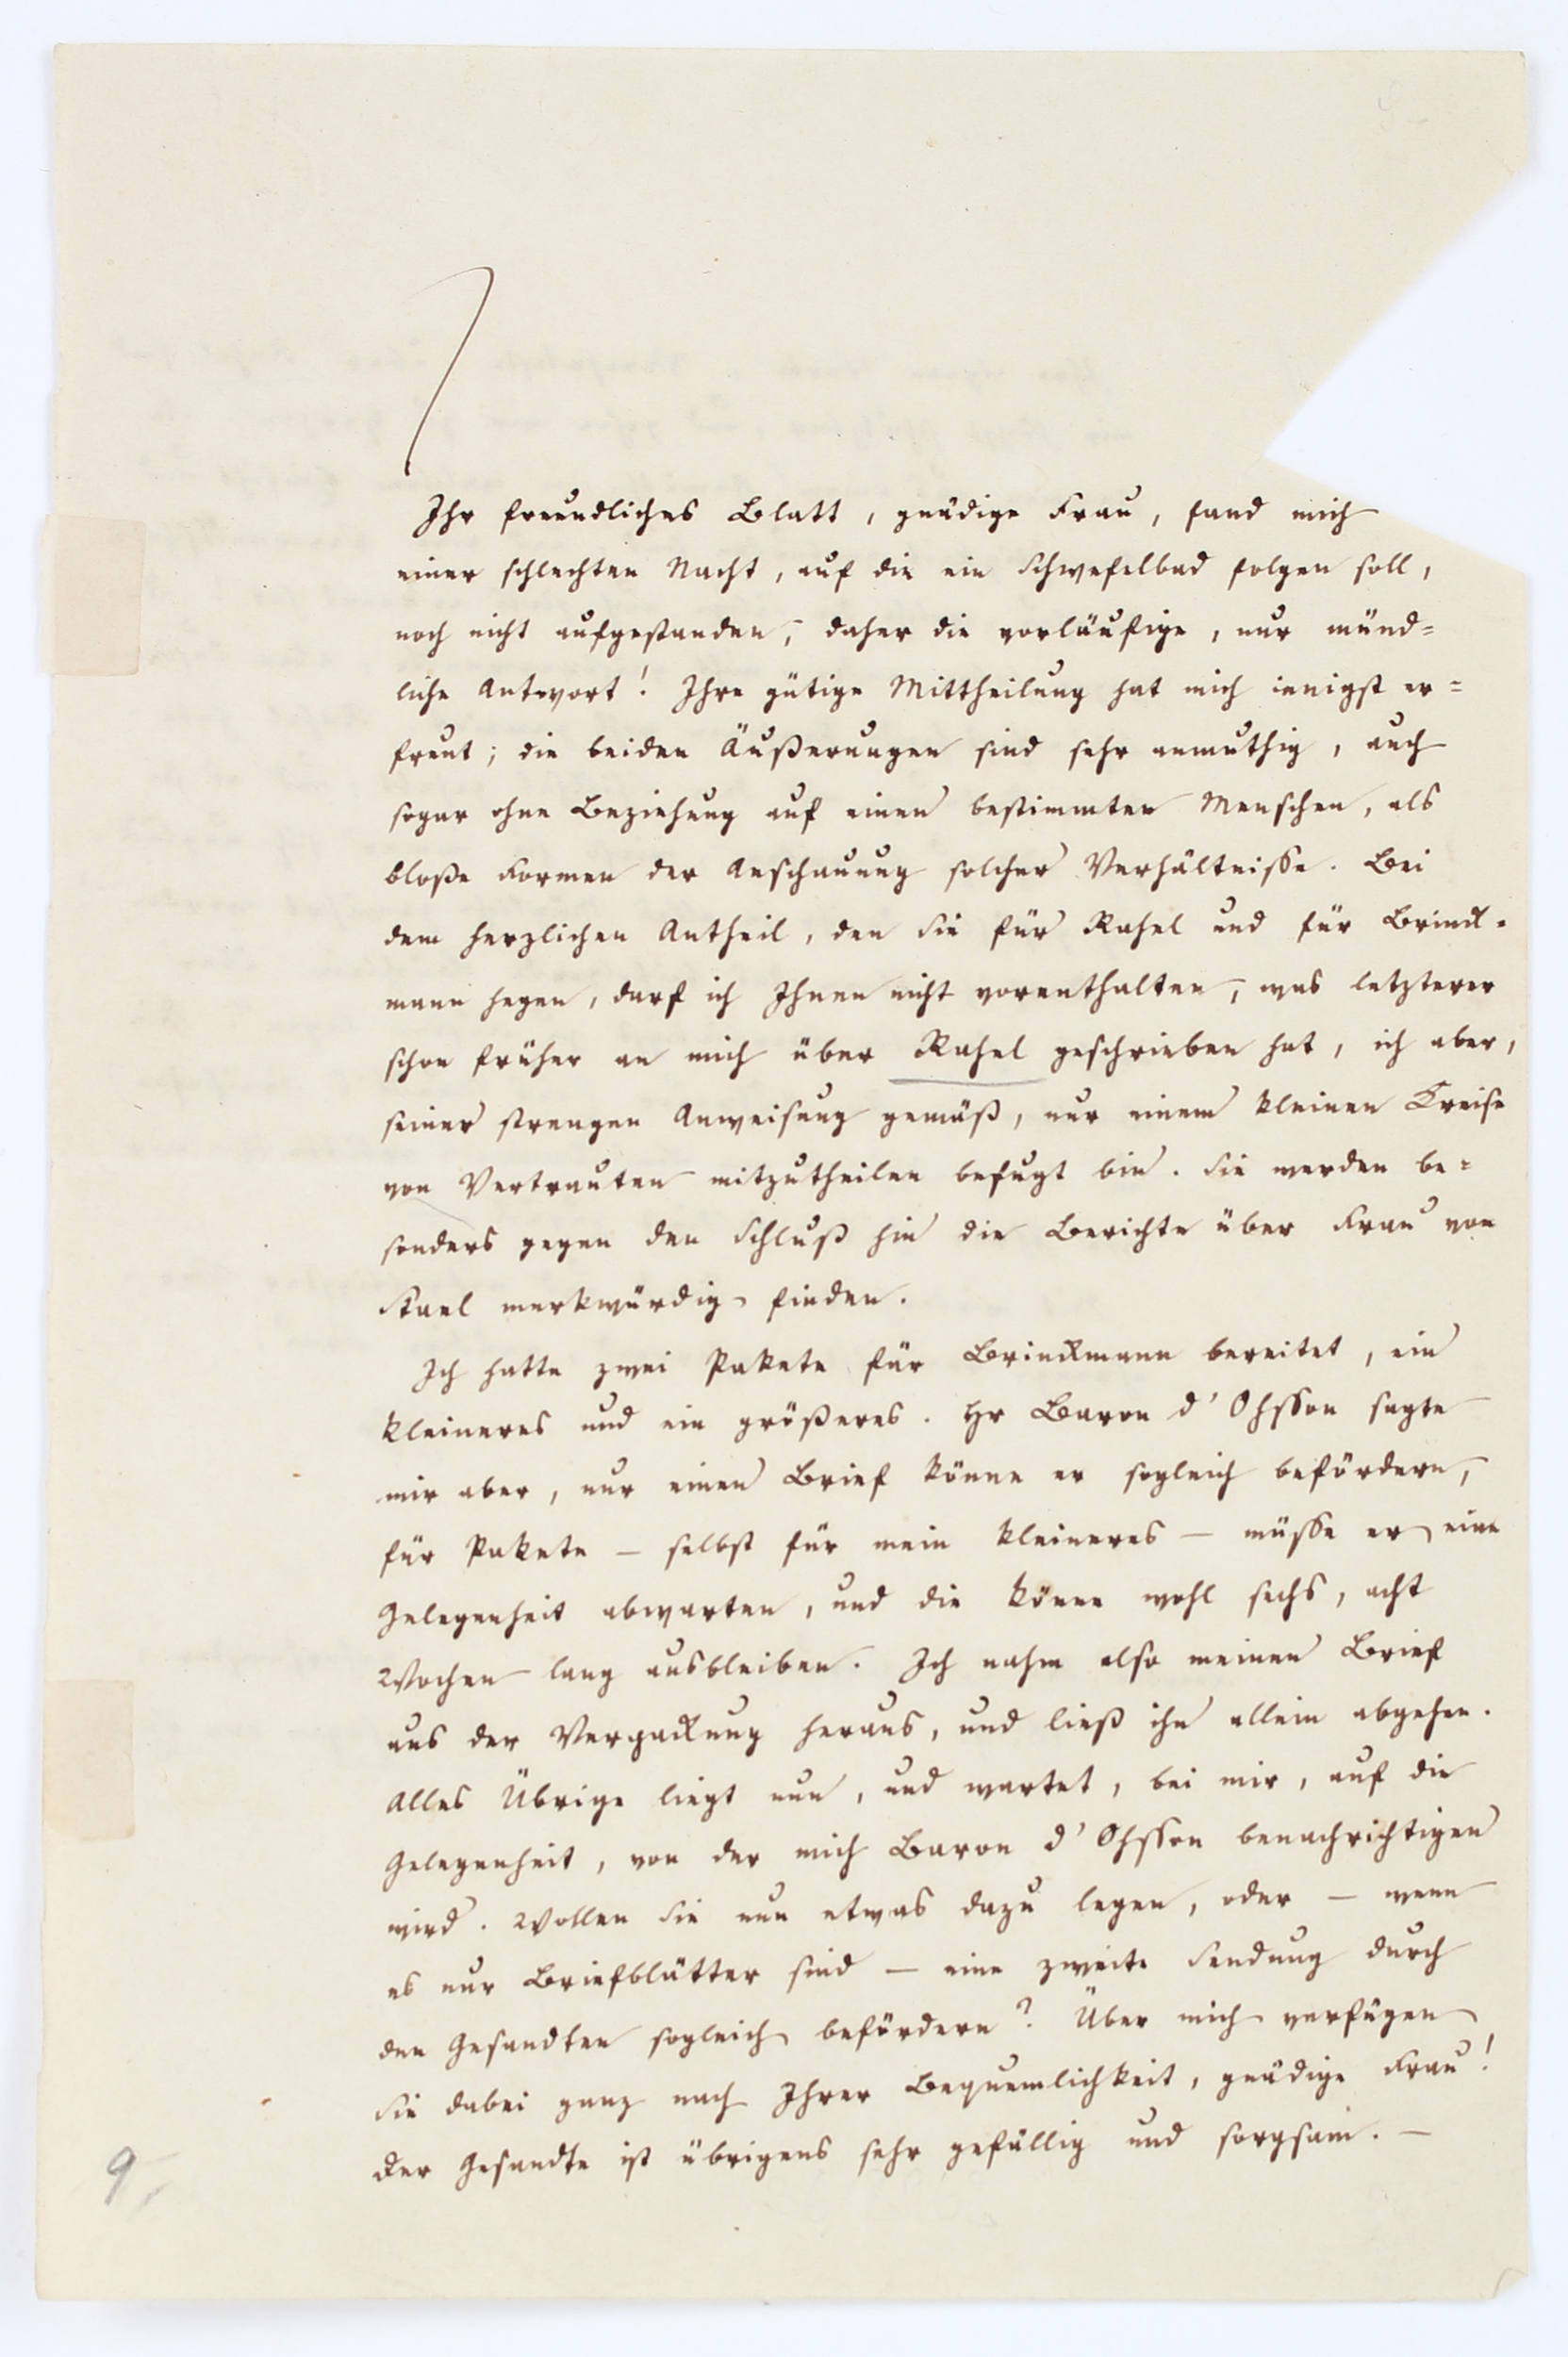 Ihr freundliches Blatt, gnädige Frau, fand mich
einer schlechten Nacht, auf die ein Schwefelbad folgen soll,
noch nicht aufgestanden, daher die vorläufige, nur münd=
liche Antwort! Ihre gütige Mittheilung hat mich innigst er=
freut; die beiden Äußerungen sind sehr anmuthig, auch
sogar ohne Beziehung auf einen bestimmten Menschen, als
bloße Formen der Anschauung solcher Verhältnisse. Bei
dem herzlichen Antheil, den Sie für Rahel und für Brinck=
mann hegen, darf ich Ihnen nicht vorenthalten, was letzterer
schon früher an mich über Rahel geschrieben hat, ich aber,
seiner strengen Anweisung gemäß, nur einem kleinen Kreise
von Vertrauten mitzutheilen befugt bin. Sie werden be=
sonders gegen den Schluß hin die Berichte über Frau von
Stael merkwürdig finden.
Ich hatte zwei Pakete für Brinckmann bereitet, ein
kleineres und ein größeres. Hr Baron d'Ohsson sagte
mir aber, nur einen Brief könne er sogleich befördern,
für Pakete – selbst für mein kleineres – müsse er eine
Gelegenheit abwarten, und die könne wohl sechs, acht
Wochen lang ausbleiben. Ich nahm also meinen Brief
aus der Verpackung heraus, und ließ ihn allein abgehen.
Alles Übrige liegt nun, und wartet, bei mir, auf die
Gelegenheit, von der mich Baron d'Ohsson benachrichtigen
wird. Wollen Sie nun etwas dazu legen, oder – wenn
es nur Briefblätter sind – eine zweite Sendung durch
den Gesandten sogleich befördern? Über mich verfügen
Sie dabei ganz nach Ihrer Bequemlichkeit, gnädige Frau!
Der Gesandte ist übrigens sehr gefällig und sorgsam. –
9,